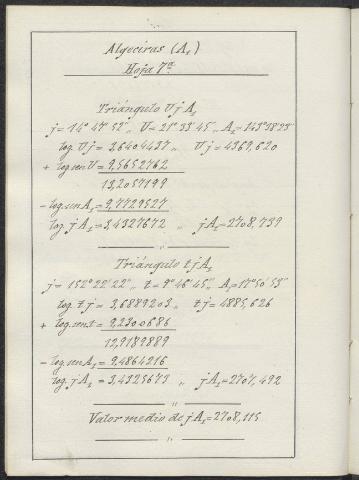 Algeciras (A₁)
Hoja 7ª
Triángulo U j A₁
j = 14° 47' 52" ,, U = 21° 33' 45" ,, A₁ = 143° 38' 23"
log. U j = 3,6404437 ,, U j = 4369,620
+ log. sen U = 9,5652762
13,2057199
- log. sen A₁ = 9,7729527
log. j A₁ = 3,4327672 ,, j A₁ = 2708,739
Triángulo t j A₁
j = 152° 22' 22" ,, t = 9° 46' 45" ,, A₁ = 17° 50' 53"
log. t j = 3,6889203 ,, t j = 4885,626
+ log. sen t = 9,2300686
12,9189889
- log. sen A₁ = 9,4864216
log. j A₁ = 3,4325673 ,, j A₁ = 2707,492
Valor medio de j A₁ = 2708,115